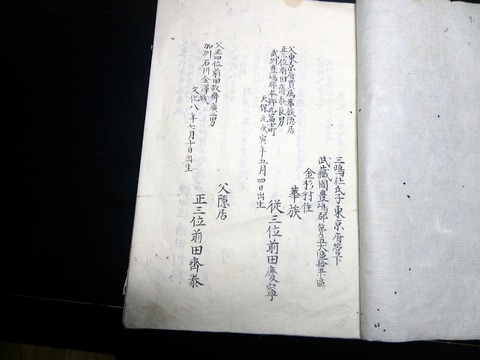 三嶋社氏子東京府管下
武藏國豊嶋郡第五大區拾五小區
金杉村住
華族
父東京府貫属華族隠居
正三位前田齊泰長男
武州豊嶋郡本郷元富士町
天保元庚寅年五月四日出生
従三位前田慶寧
父隠居
父正四位前田故齊廣二男
加州石川金澤城
文化八年七月十日出生
正三位前田齊泰